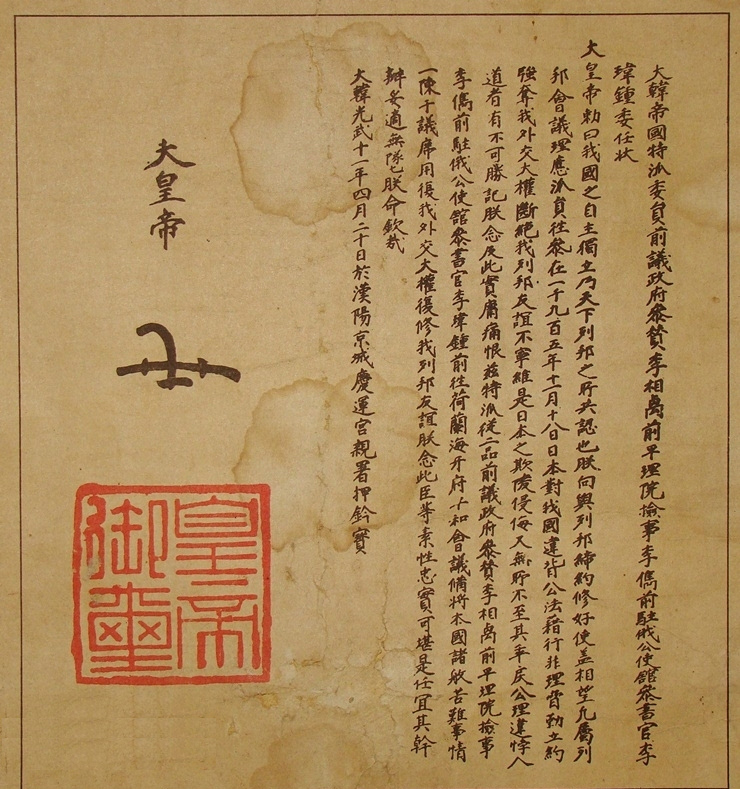 大韓帝國特派委員前議政府參贊李相卨前平理院檢事李儁前駐俄公使館參書官李
瑋鍾委任狀
大皇帝勅曰我國之自主獨立乃天下列邦之所共認也朕向與列邦締約修好使蓋相望凡屬列
邦會議理應派員往參在一千九百五年十一月十八日日本對我國違背公法藉行非理脅勒立約
強奪我外交大權斷絕我列邦友誼不寧維是日本之欺陵侵侮又無所不至其乖戾公理違悖人
道者有不可勝記朕念及此實庸痛恨茲特派從二品前議政府參贊李相卨前平理院檢事
李儁前駐俄公使館參書官李瑋鍾前往荷蘭海牙府平和會議備將本國諸般苦難事情
一陳于議席用復我外交大權復修我列邦友誼朕念此臣等素性忠實可堪是任宜其幹
辦妥適無隊也朕命欽哉
大韓光武十一年四月二十日於漢陽京城慶運宮親署押鈐寶
大皇帝
皇帝
御璽